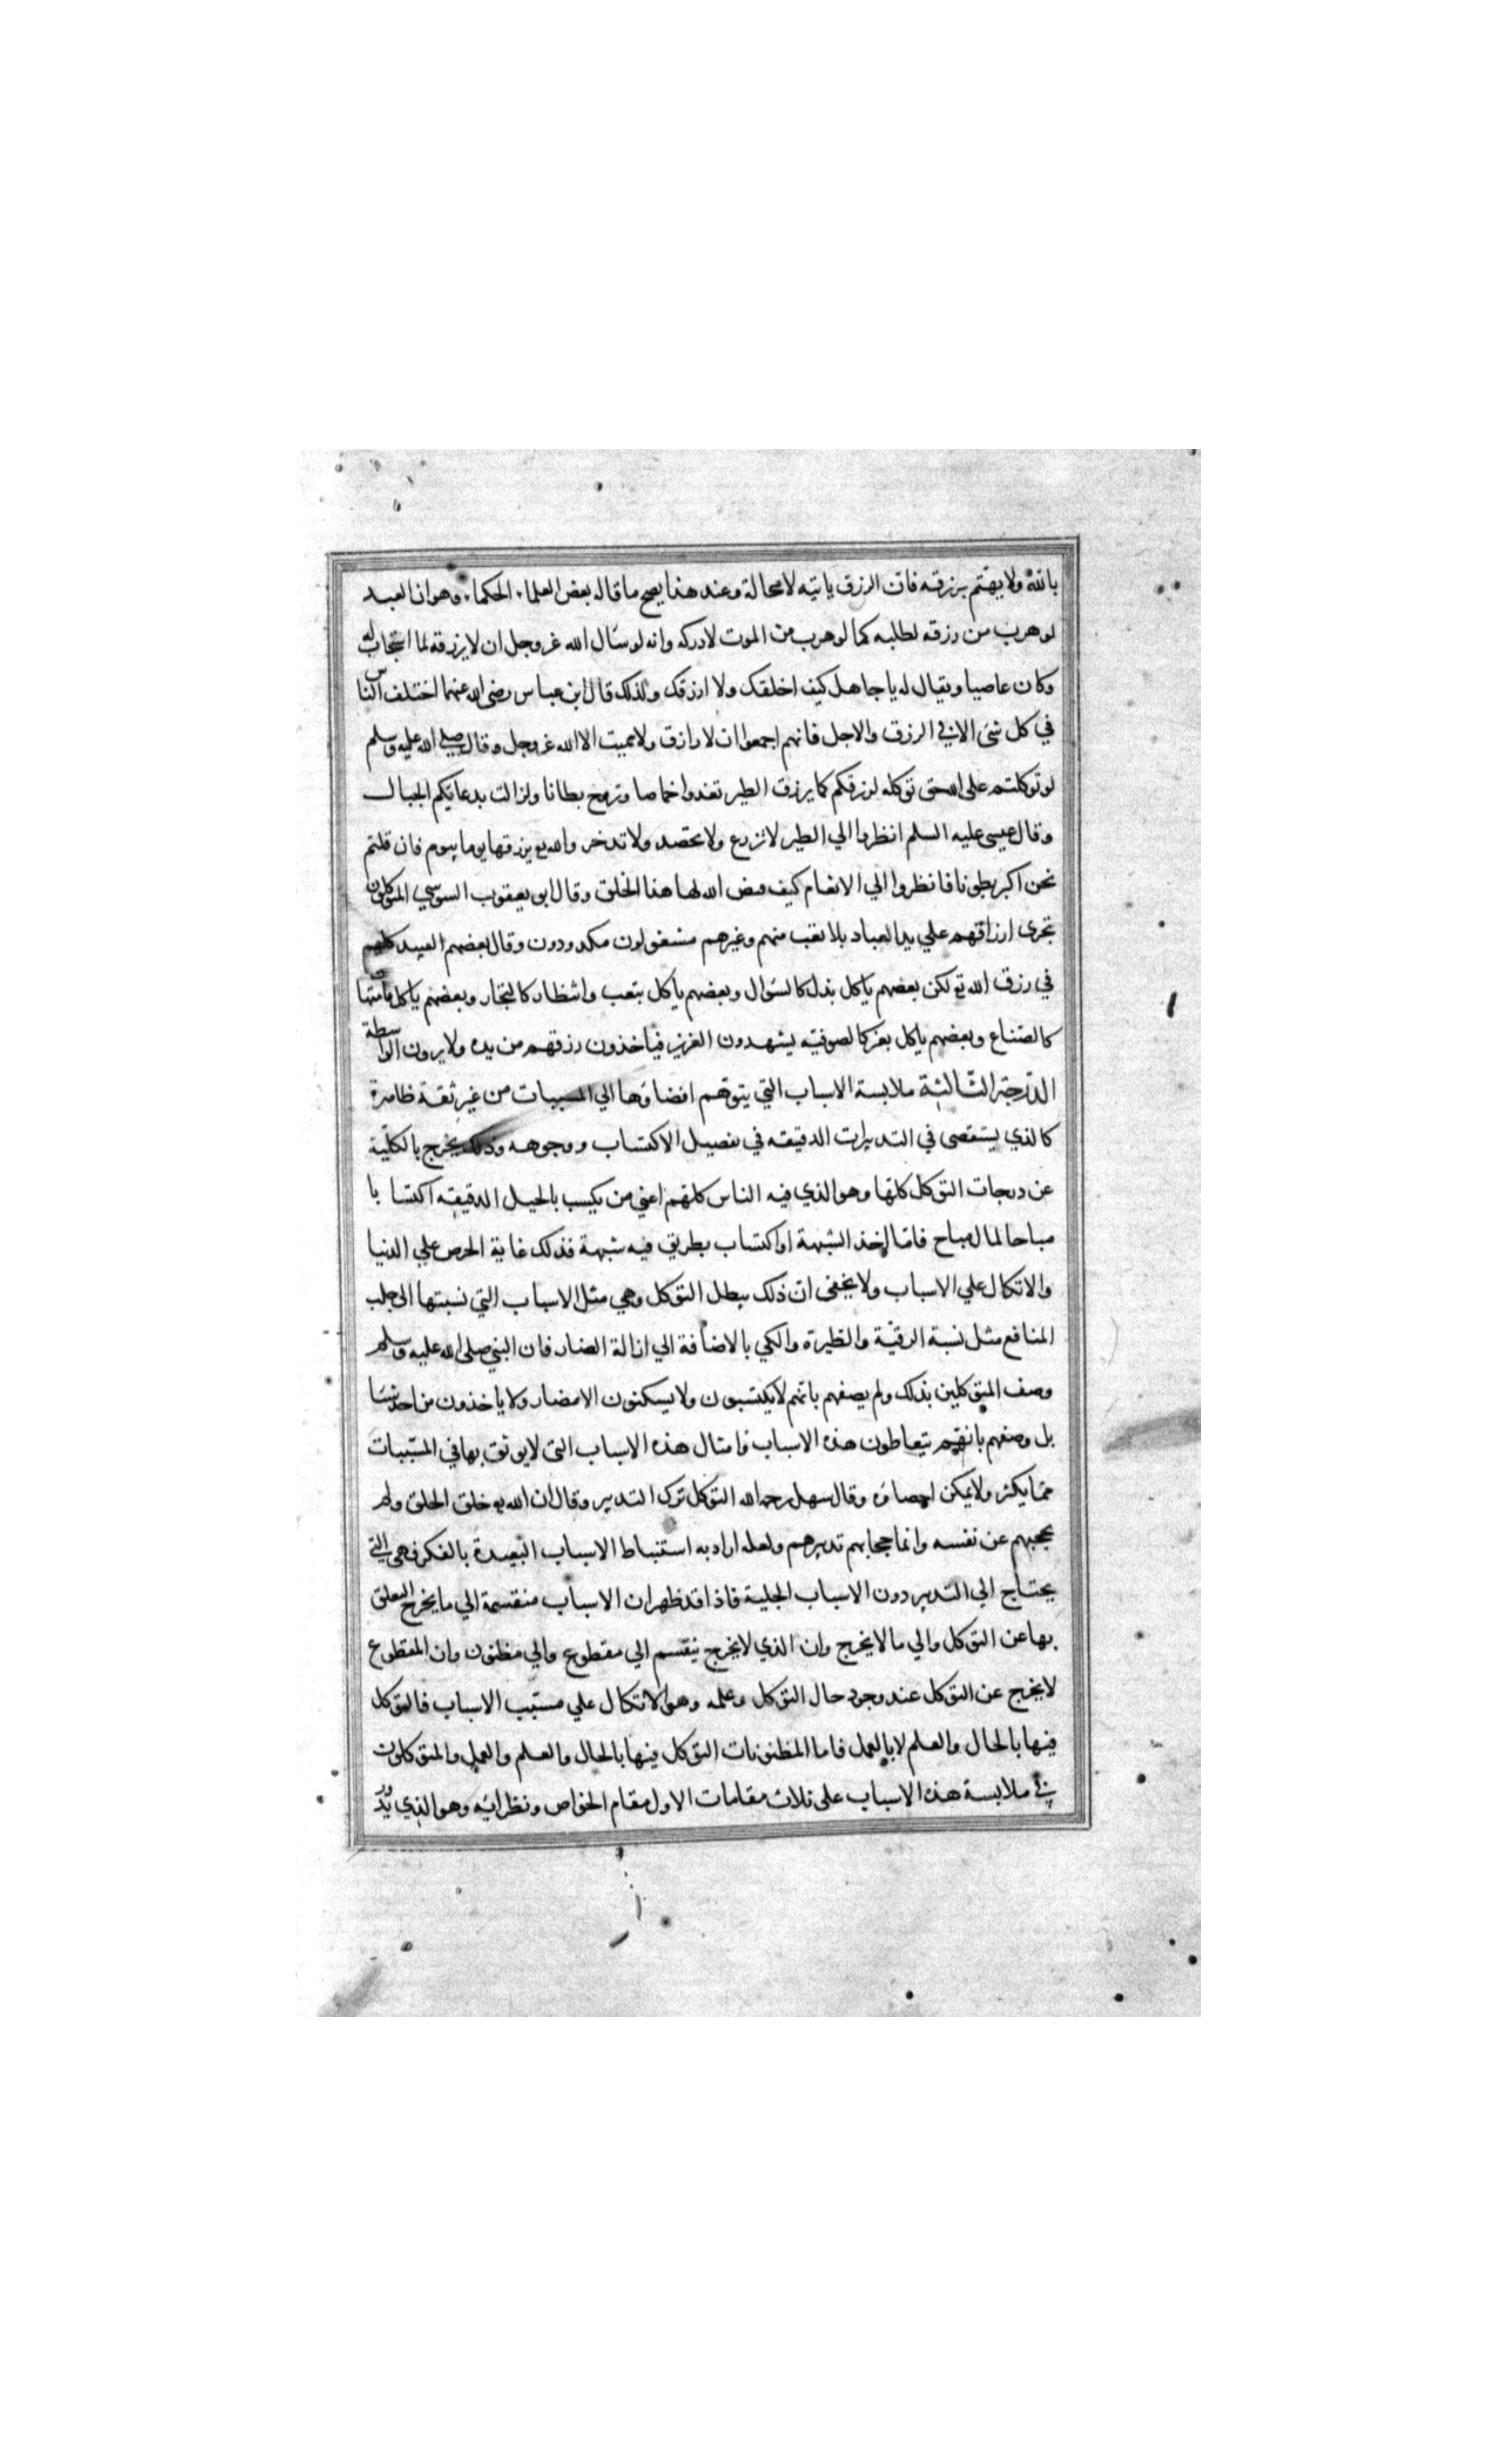 بالله ولا يهتم برزقه فان الرزق ياتيه لا محالة وعند هذا يصح ما قاله بعض العلماء الحكماء وهو ان العبد
لو هرب من رزقه لطلبه كما لو هرب من الموت لادركه وانه لو سال الله عز وجل ان لا يرزقه لما استجاب له
وكان عاصيا ويقال له يا جاهل كيف اخلقك ولا ارزقك ولذلك قال ابن عباس رضى الله عنهما اختلف الناس
في كل شئ الا في الرزق والاجل فانهم اجمعوا ان لا رازق ولا مميت الا الله عز وجل وقال صلى الله عليه وسلم
لو توكلتم على الله حق توكله لرزقكم كما يرزق الطير تغدوا خماصا وتروح بطانا ولزالت بدعائكم الجبال
وقال عيسى عليه السلم انظروا الي الطير لا تزرع ولا تحصد ولا تدخر والله تع يرزقها يوما بيوم فان قلتم
نحن اكبر بطونا فانظروا الي الانعام كيف قيض الله لها هذا الخلق وقال ابو يعقوب السوسي المتوكلون
تجرى ارزاقهم علي يد العباد بلا تعب منهم وغيرهم مشغولون مكدودون وقال بعضهم العبيد كلهم
في رزق الله تع لكن بعضهم ياكل بذل كالسوال وبعضهم ياكل بتعب وانتظار كالتجار وبعضهم ياكل بامتهان
كالصناع وبعضهم ياكل بعز كالصوفيه يشهدون العزيز فياخذون رزقهم من يده ولا يرون الواسطة
الدرجة الثالثة ملابسة الاسباب التي يتوهم افضاؤها الي المسببات من غير ثقة ظاهرة
كالذي يستقصى في التدبيرات الدقيقه في تفصيل الاكتساب ووجوهه وذلك يخرج بالكلية
عن درجات التوكل كلها وهو الذي فيه الناس كلهم اعني من يكسب بالحيل الدقيقه اكتسابا
مباحا لمال مباح فاما اخذ الشبهة او اكتساب بطريق فيه شبهة فذلك غاية الحرص علي الدنيا
والاتكال علي الاسباب ولا يخفى ان ذلك يبطل التوكل وهي مثل الاسباب التي نسبتها الى جلب
المنافع مثل نسبة الرقية والطيرة والكي بالاضافة الي ازالة الضار فان النبي صلى الله عليه وسلم
وصف المتوكلين بذلك ولم يصفهم بانهم لا يكتسبون ولا يسكنون الامضار ولا ياخذون من احد شيا
بل وصفهم بانهم يتعاطون هذه الاسباب وامثال هذه الاسباب التى لا يوثق بها في المسببات
مما يكثر ولا يمكن احصاؤه وقال سهل رحمه الله التوكل ترك التدبير وقال ان الله تع خلق الخلق ولم
يحجبهم عن نفسه وانما حجابهم تدبيرهم ولعله اراد به استنباط الاسباب البعيدة بالفكر فهى التي
يحتاج الي التدبير دون الاسباب الجلية فاذا قد ظهر ان الاسباب منقسمة الي ما يخرج التعلق
بها عن التوكل والي ما لا يخرج وان الذي لا يخرج ينقسم الي مقطوع والي مظنون وان المقطوع
لا يخرج عن التوكل عند وجود حال التوكل وعلمه وهو الاتكال علي مسبب الاسباب فالتوكل
فيها بالحال والعلم لا بالعمل فاما المظنونات التوكل فيها بالحال والعلم والعمل والمتوكلون
في ملابسة هذه الاسباب على ثلاث مقامات الاول مقام الخواص ونظرائه وهو الذي يدور